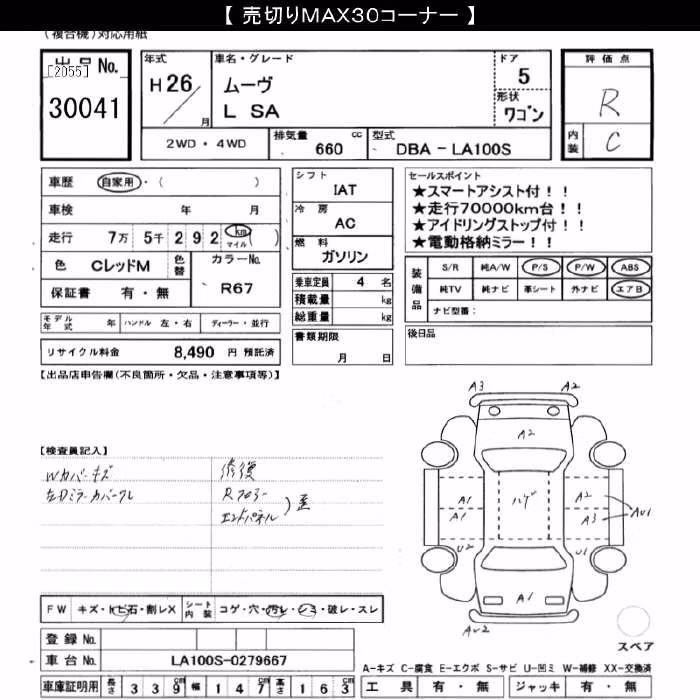 【 売切りMAX30コーナー 】
(複合機)対応用紙
出品No.
[2055]
30041
年式
H26
月
車名・グレード
ムーヴ
L SA
ドア
5
形状
ワゴン
評価点
R
内装
C
2WD・4WD
排気量
660 cc
型式
DBA - LA100S
車歴 自家用・( )
車検 年 月
走行 7万 5千 2 9 2 km マイル ( )
色 CレッドM 色替
カラーNo.
R67
保証書 有・無
シフト
IAT
冷房
AC
燃料
ガソリン
乗車定員 4 名
積載量 kg
総重量 kg
書類期限
月 日
セールスポイント
★スマートアシスト付!!
★走行70000km台!!
★アイドリングストップ付!!
★電動格納ミラー!!
装備品
S/R 純A/W P/S P/W ABS
純TV 純ナビ 革シート 外ナビ エアB
ナビ型番:
モデル年式 年 ハンドル 左・右 ディーラー・並行
リサイクル料金 8,490 円 預託済
後日品
【出品店申告欄(不良箇所・欠品・注意事項等)】
【検査員記入】
Wカバーキズ
左Dミラーカバークレ
修復
Rフロアー
エンドパネル
) 歪
A3 A2
A2
A1 ハゲ A2
A1 A3 AU1
U2 U1
A1
AU2
スペア
FW キズ・トビ石・割レX
シート内装 コゲ・穴・汚レ・シミ・破レ・スレ
登録No.
車台No. LA100S-0279667
A-キズ C-腐食 E-エクボ S-サビ U-凹ミ W-補修 XX-交換済
車庫証明用 長さ 3 3 9 cm 幅 1 4 7 cm 高さ 1 6 3 cm
工具 有・無 ジャッキ 有・無